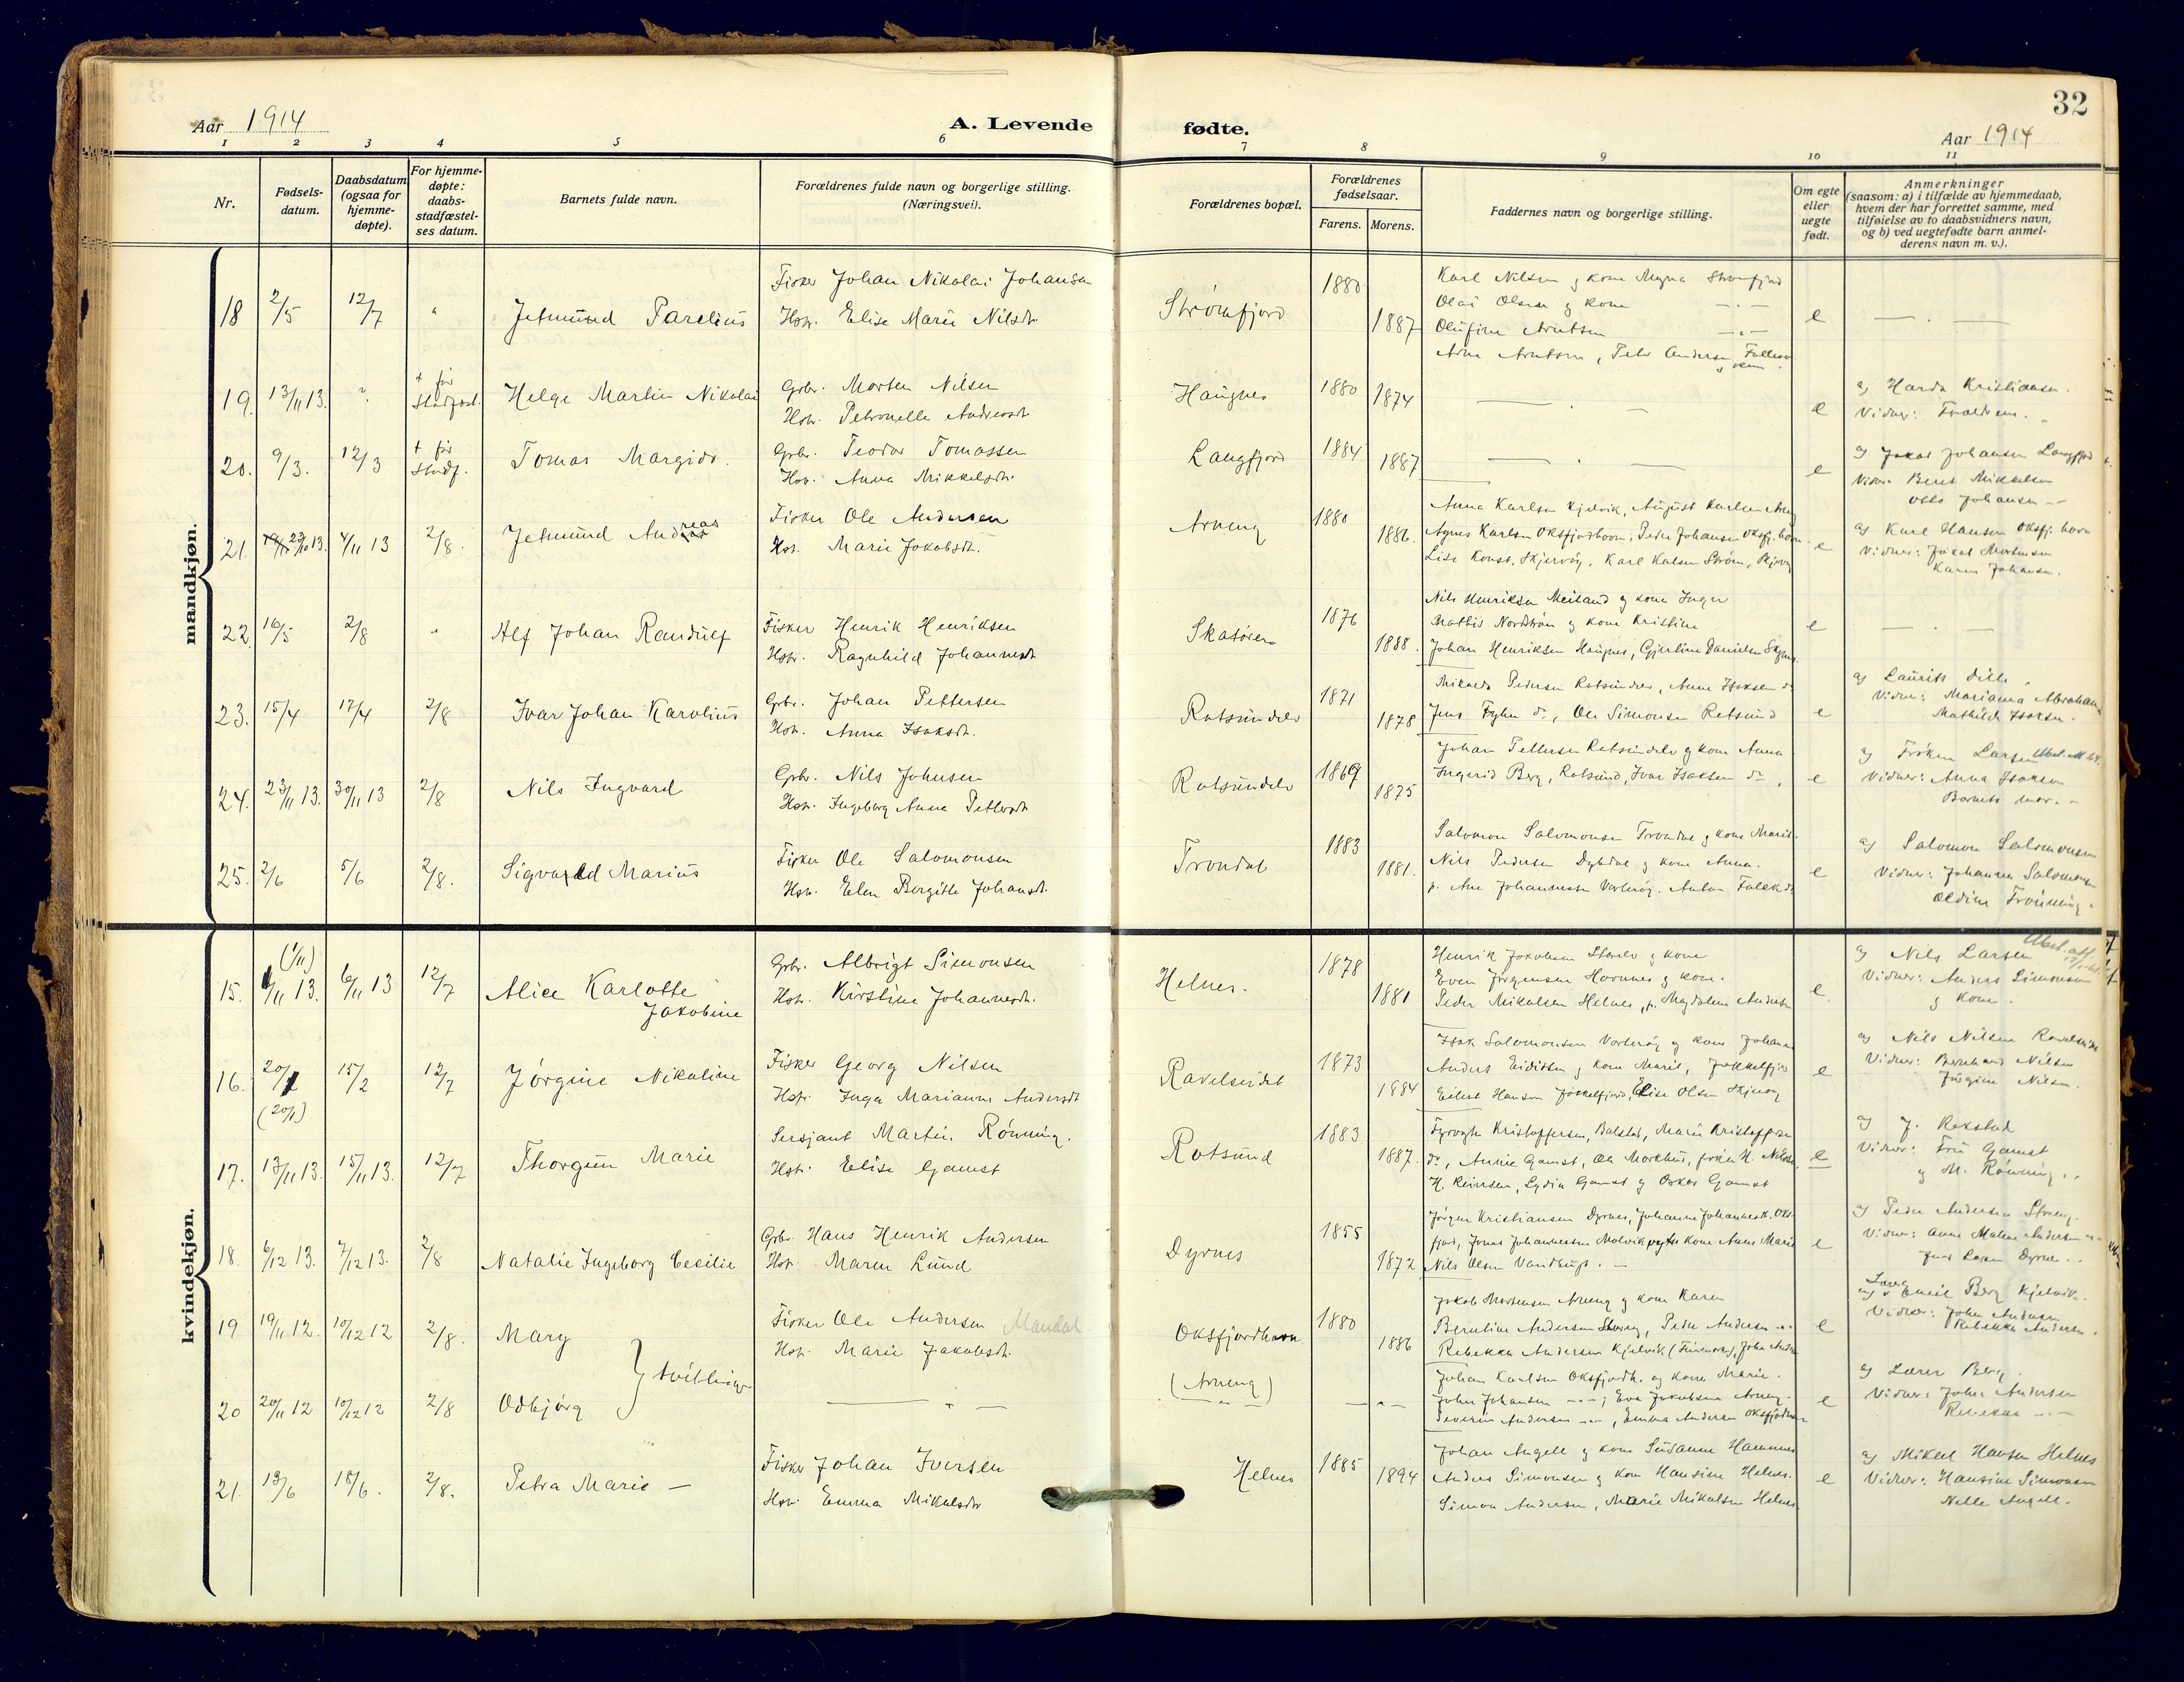 32
Aar 1914
A. Levende fødte.
Aar 1914
1 2 3 4 5 6 7 8 9 10 11
Nr.
Fødsels-
datum.
Daabsdatum
(ogsaa for
hjemme-
døpte).
For hjemme-
døpte:
daabs-
stadfæstel-
ses datum.
Barnets fulde navn.
Forældrenes fulde navn og borgerlige stilling.
(Næringsvei).
Forældrenes bopæl.
Forældrenes
fødselsaar.
Farens. Morens.
Faddernes navn og borgerlige stilling.
Om egte
eller
uegte
født.
Anmerkninger
(saasom: a) i tilfælde av hjemmedaab,
hvem der har forrettet samme, med
tilføielse av to daabsvidners navn,
og b) ved uegtefødte barn anmel-
derens navn m. v.).
mandkjøn.
18 2/5 12/7 " Jetmund Parelius
Fisker Johan Nikolai Johansen
Hstr. Elise Marie Nilsdt.
Strømfjord 1880 1887
Karl Nilsen og kone Magna Strømfjord
Olai Olsen og kone —"—
Olufine Arntsen —"—
Arne Arntsen, Peder Andersen
e
19. 13/11 13. " + før Stadfæst. Helge Martin Nikolai
Grbr. Morten Nilsen
Hstr. Petronelle Andreasdt.
Haugnes 1880 1874
e
a) Harda Kristiansen.
Vidner: Forældrene.
20. 9/3. 12/3 + før Stadf. Tomas Margido.
Grbr. Teodor Tomassen
Hstr. Anna Mikkelsdt.
Langfjord 1884 1887
e
a) Jakob Johansen Langfjord
Vidner: Berit Mikkelsen
Otto Johansen —
21. 23/10 13. 4/11 13 2/8. Jetmund Andreas
Fisker Ole Andersen
Hst. Marie Jakobsdt.
Arneng 1880 1886.
Anna Karlsen Kjelvik, August Karlsen
Agnes Karlsen Oksfjordhavn, Peder Johansen Oksfj. havn
Lise Konst. Skjervøy, Karl Karlsen Strøm, Skjervøy
e
a) Karl Hansen Oksfj. havn
Vidner: Jakob Mortensen
Karen Johansen.
22. 16/5 2/8 " Alf Johan Randulf
Fisker Henrik Henriksen
Hstr. Ragnhild Johannesdt.
Skatøren 1876 1888.
Nils Henriksen Meiland og kone Inger
Mathis Nordstrøm og kone Kristine
Johan Henriksen Haugnes, Gjertine Danielsen
e
23. 15/4 17/4 2/8 Ivar Johan Karolius
Grbr. Johan Pettersen
Hstr. Anna Isaksdt.
Rotsundelv 1871 1878
Mikael Pedersen Rotsundelv, Anne Isaksen do
Jens Fyhn do, Ole Simonsen Rotsund
e
a) Laurits Lille.
Vidner: Marianna Abrahamsen
Mathilde Isaksen.
24. 23/11 13. 30/11 13 2/8 Nils Ingvard
Grbr. Nils Johnsen
Hstr. Ingeborg Anna Pettersdt.
Rotsundelv 1869 1875
Johan Pettersen Rotsundelv og kone Anna
Ingerid Berg, Rotsund, Ivar Isaksen do
e
a) Frøken Larsen
Vidner: Anna Isaksen
Barnets mor. —
25. 2/6 5/6 2/8. Sigvald Marius
Fisker Ole Salomonsen
Hstr. Elen Bergitte Johansdt.
Trondal 1883 1881.
Salomon Salomonsen Trondal og kone Marit.
Nils Pedersen Dybdal og kone Anna.
p. Ane Johannesen Vorterøy. Anton Falck do
e
a) Salomon Salomonsen
Vidner: Johanna Salomonsen
Oldine Frønning.
kvindekjøn.
15. (1/11) 6/11 13. 6/11 13 12/7 Alice Karlotte Jakobine
Grbr. Albrigt Simonsen
Hstr. Kirstine Johannesdt.
Helnes. 1878 1881
Henrik Jakobsen Storelv og kone
Even Jørgensen Havnnes og kone.
Peder Mikalsen Helnes, p. Magdalene Andersen
e.
a) Nils Larsen
Vidner: Anders Simonsen
og kone.
16. 20/1 (20/1) 15/2 12/7 Jørgine Nikoline
Fisker Georg Nilsen
Hstr. Inga Marianne Andersdt.
Ravelseidet 1873 1884
Isak Salomonsen Vorterøy og kone Johanna
Anders Eidissen og kone Marie, Jøkkelfjord
Eilert Hansen Jøkkelfjord, Elise Olsen Skjervøy
e
a) Nils Nilsen Ravelseidet
Vidner: Bernhard Nilsen
Jørgine Nilsen.
17. 13/11 13. 15/11 13. 12/7 Thorgun Marie
Sersjant Martin Rønning.
Hstr. Elise Gamst
Rotsund 1883 1887.
Kristoffersen, Balstad, Marie Kristoffersen
do, Annie Gamst, Ole Morkhus, frøken N. Nilsen
H. Reiersen, Lydia Gamst og Oskar Gamst
e
a) J. Rekstad
Vidner: Fru Gamst
og M. Rønning.
18. 6/12 13. 7/12 13. 2/8 Natalie Ingeborg Cecilie
Grbr. Hans Henrik Andersen
Hstr. Maren Lund
Dyrnes 1855 1872
Jørgen Kristiansen Dyrnes, Johanne Johannesdt. Oks-
fjord, Jonas Johannessen Molvik og kone Anne Marie
Nils Olsen Vandtrup. —
e
a) Peder Andersen Storeng.
Vidner: Anne Malene Andersen —"—
Jens Larsen Dyrnes.
19 19/11 12. 10/12 12 2/8. Mary
Fisker Ole Andersen Mandal
Hstr. Marie Jakobsdt.
tvillinger
Oksfjordhavn
(Arneng)
1880 1886
Jakob Mortensen Arneng og kone Karen
Berntine Andersen Storeng, Peder Andersen —"—
Rebekka Andersen Kjelvik (Finmark), John Andersen
e
a) Lærer Emil Berg Kjelvik.
Vidner: John Andersen
Rebekka Andersen.
20 20/11 12 10/12 12 2/8 Odbjørg
—"—
Johan Karlsen Oksfjordh. og kone Marie.
Johan Johansen —"—; Eva Jakobsen Arneng.
Severin Andersen —"—, Emma Andersen Oksfjordhavn
e
a) Lærer Berg.
Vidner: John Andersen
Rebekka —"—
21. 13/6 18/6. 2/8. Petra Marie —
Fisker Johan Iversen
Hstr. Emma Mikalsdtr
Helnes 1885 1894
Johan Angell og kone Susanne Hamnnes
Anders Simonsen og kone Hansine Helnes.
Simon Andersen, Marie Mikalsen Helnes
e
a) Mikal Hansen Helnes
Vidner: Hansine Simonsen
Nelle Angell.